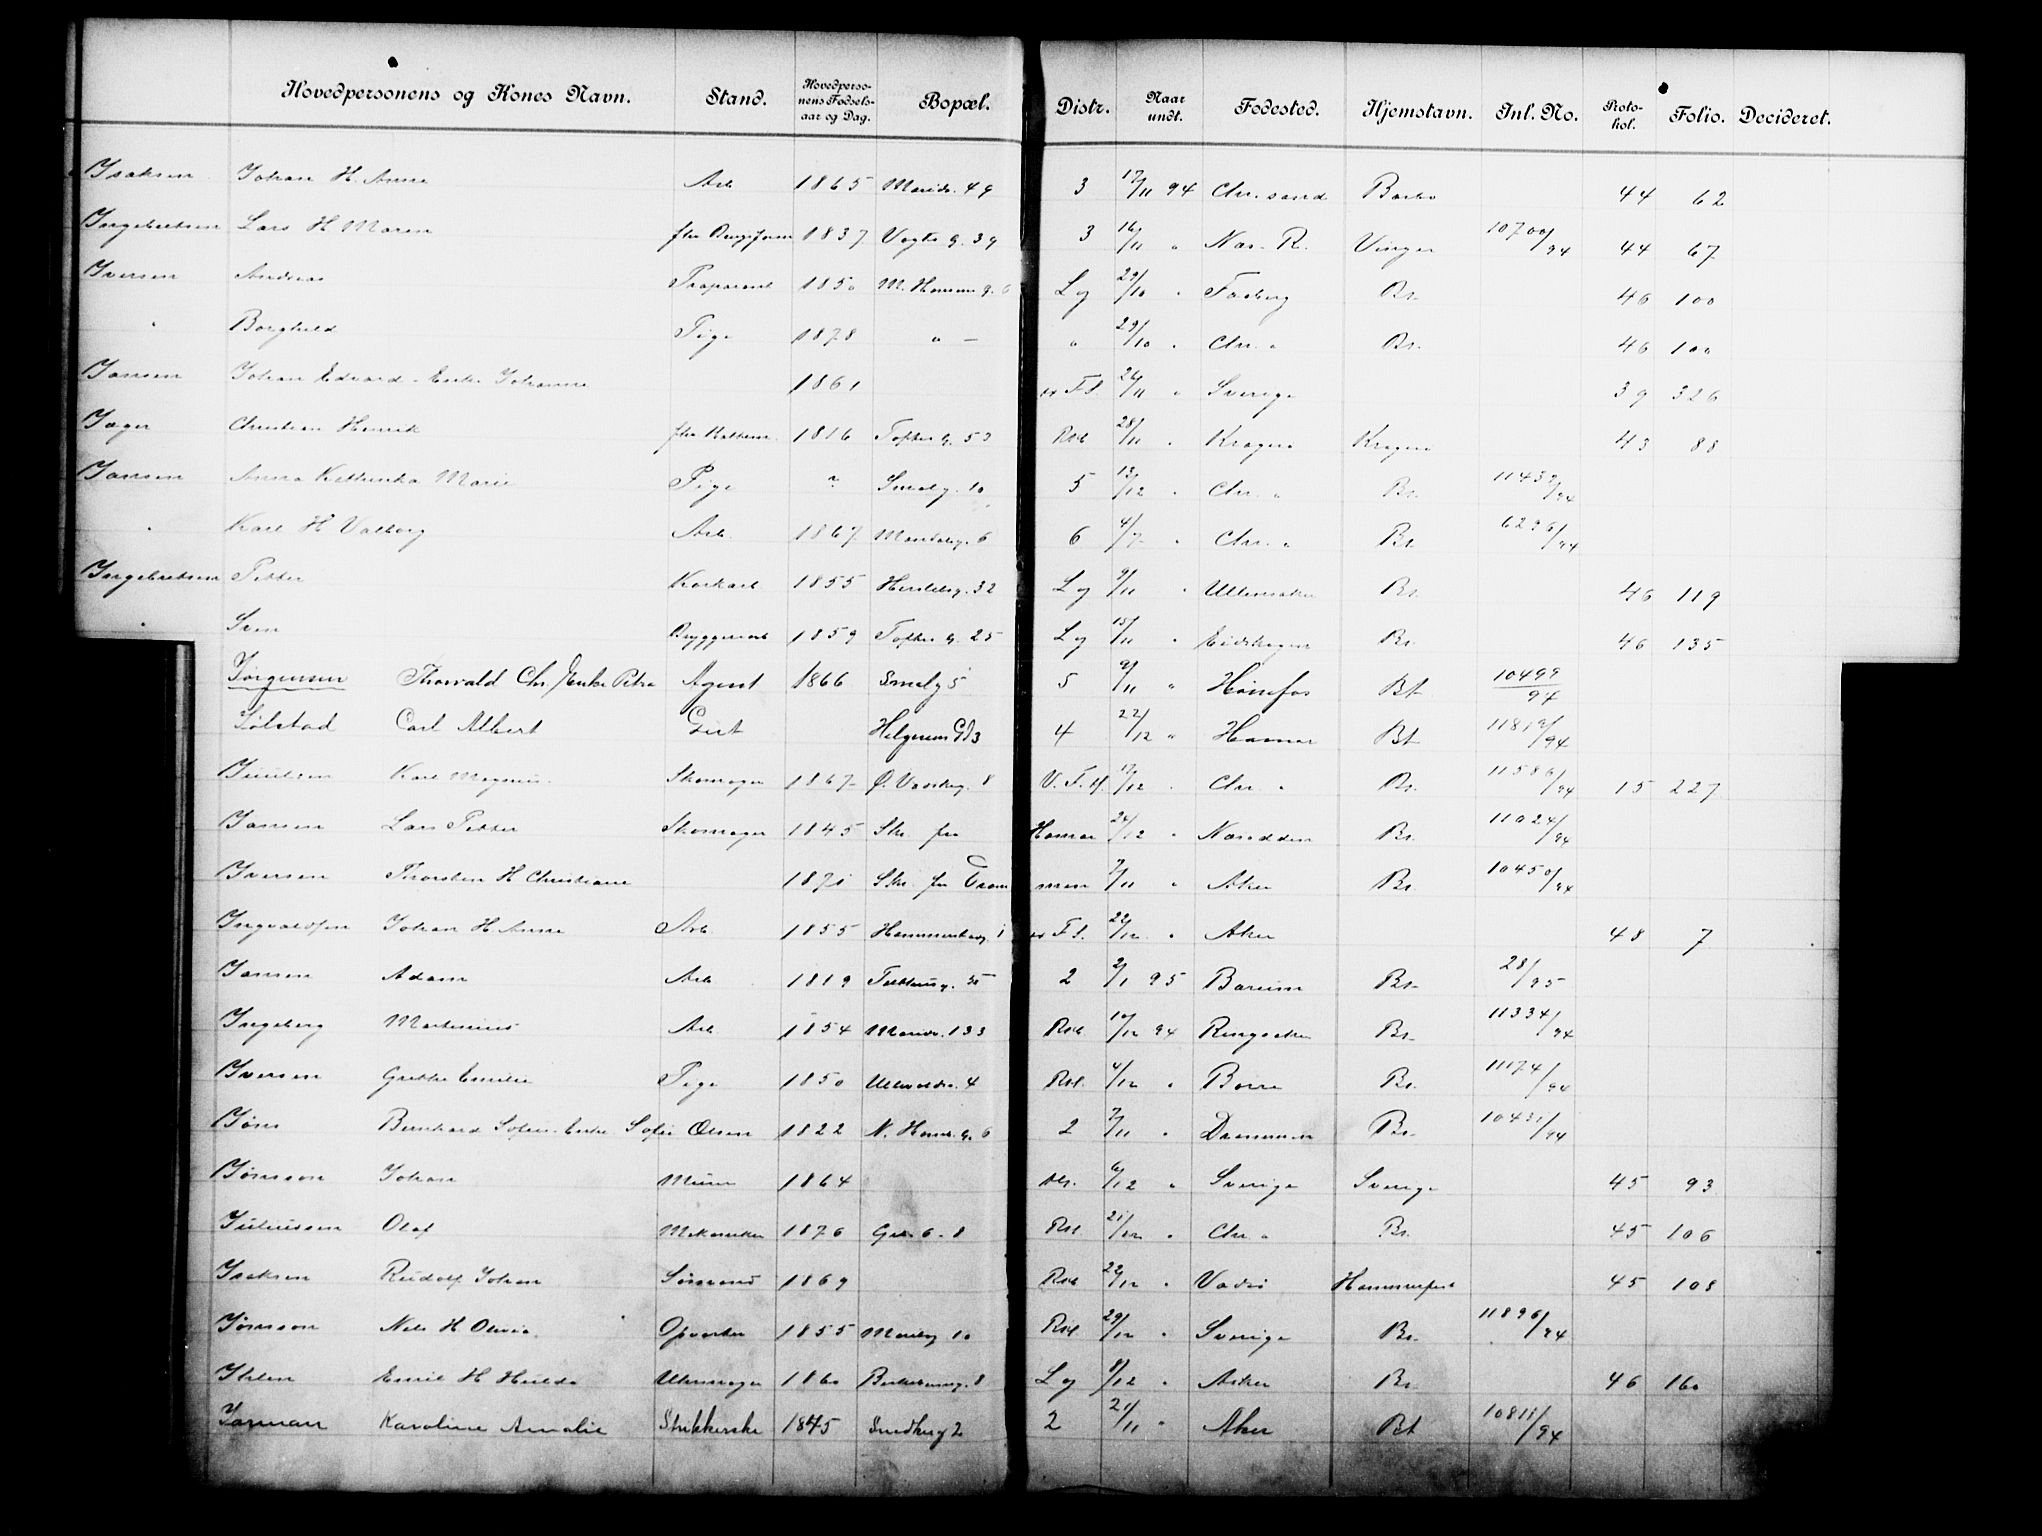 Hovedpersonens og Kones Navn. Stand. Hovedperso-nens Fødsels-aar og Dag. Bopæl. Distr. Naar undt. Fødested. Hjemstavn. Inl. No. Proto-kol. Folio. Decideret.
Isaksen Johan H. Anna Arb 1865 Marids. 49 3 17/11 94 Chr. sand Barbo 44 62
Ingebretsen Lars H Maren 1837 Vogts g. 39 3 16/11 " Nas. R. Vinger 10700/94 44 67
Iversen Andreas 1850 M. Hansens g. 6 Lg 29/10 " Faaberg Bt. 46 100
" Borghild Pige 1878 " — " 29/10 " Chr. " Bt. 46 100
Jansen Johan Edvard - Enke Johanne 1861 26/11 " Sverige 39 326
Jæger Christian Henrik 1816 Toftes g. 53 Rst 28/11 " Kragerø Kragerø 43 88
Jansen Anna Kathinka Marie Pige ? Smalg. 10 5 13/12 " Chr. " Bt. 11432/94
" Karl H Valborg Arb. 1867 Mandalsg. 6 6 4/7 " Chr. " Bt. 6296/94
Ingebretsen Petter 1855 Herslebsg. 32 Lg 9/11 " Ullensaker Bt. 46 119
" Sven Bryggeriarb 1859 Toftes g. 25 Lg 15/11 " Eidskogen Bt. 46 135
Jørgensen Thorvald Chr. Enke Petra Agent 1866 Smalg 5 5 9/11 " Hønefos Bt. 10499/94
Jølstad Carl Albert Helgesens Gd 3 4 22/12 " Hamar Bt 11819/94
Juulsen Karl Magnus. Skomager 1867 Ø. Vaskeg. 8 V. F. H. 17/12 " Chr. " Bt. 11586/94 15 227
Jansen Lars Petter Skomager 1845 Skr. fra Hamar 24/12 " Næsodden Bt. 11024/94
Iversen Thorsten H Christiane 1871 Skr. fra Tromsøen 7/11 " Aker Bt. 10450/94
Ingvaldsen Johan H. Anna Arb. 1855 Hammersborg. 1 22/12 " Aker 48 7
Jansen Adam Arb 1819 Toftbusg. 35 2 2/1 95 Bærum Bt. 28/95
Ingeberg Martinius Arb 1854 Marids. 133 Rst. 10/12 94 Ringsaker Bt. 11334/94
Iversen Grethe Emilie Pige 1850 Ullevoldsv. 4 Rst. 4/12 " Borre Bt. 11174/94
Jøns Bernhard Sofus. Enke Sofie Olsen 1822 N. Hamb. g. 6 2 7/11 " Drammen Bt. 10431/94
Jønsson Johan Murer 1864 6/12 " Sverige Sverige 45 93
Juliussen Olaf Mekaniker 1876 Gdn. 6. 8 Rst. 21/12 " Chr. " Bt. 45 106
Isaksen Rudolf Johan Sømand 1869 Rst 22/12 " Vadsø Hammerfest 45 108
Jønsson Nils H Olivia. Opvarter 1855 Marids 10 Rst 29/12 " Sverige Bt. 11896/94
Ihlen Emil H Hulda Uhrmager 1860 Birkelunsg. 8 Lg 8/12 " Asker Bt. 46 160
Jarman Karoline Amalie Strikkerske 1845 Sundbyg 2 2 21/11 " Aker Bt 10811/94